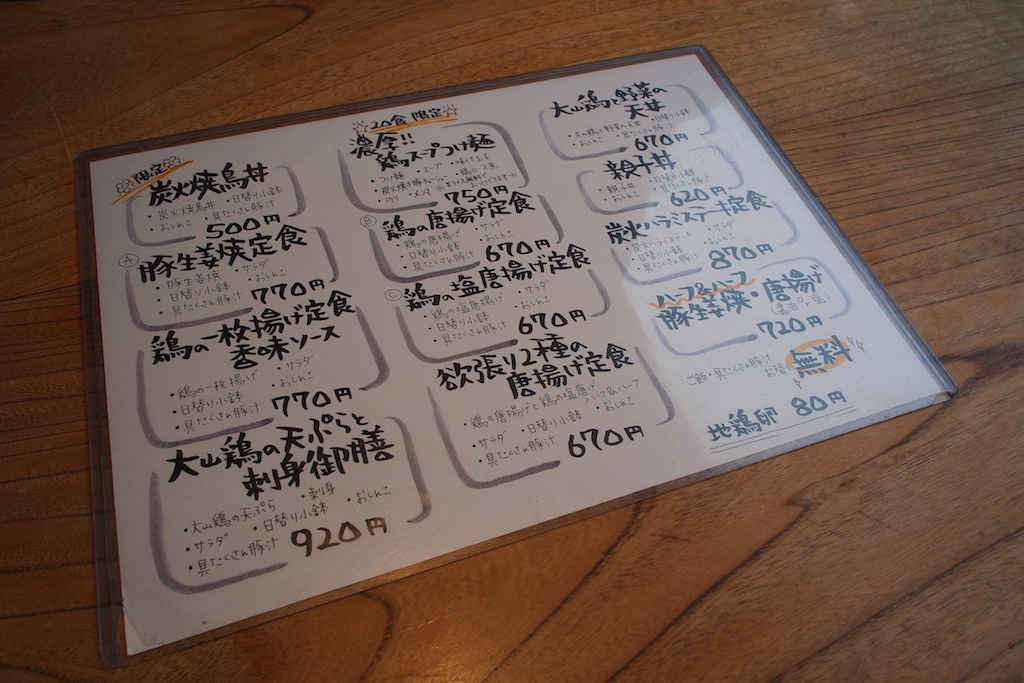 限定
炭火焼鳥丼
・炭火焼鳥丼 ・日替り小鉢
・おしんこ ・具たくさん豚汁
500円
Ⓐ 豚生姜焼定食
・豚生姜焼 ・サラダ
・日替り小鉢 ・おしんこ
・具たくさん豚汁
770円
鶏の一枚揚げ定食
香味ソース
・鶏の一枚揚げ ・サラダ
・日替り小鉢 ・おしんこ
・具たくさん豚汁
770円
大山鶏の天ぷらと
刺身御膳
・大山鶏の天ぷら ・刺身 ・おしんこ
・サラダ ・日替り小鉢
・具たくさん豚汁
920円
☆20食 限定☆
濃厚!!
鶏スープつけ麺
・つけ麺 ・スープ ・味付玉子
・炭火焼き豚チャーシュー ・鶏ロース煮
・のり ・メンマ
750円
Ⓑ 鶏の唐揚げ定食
・鶏の唐揚げ ・サラダ
・日替り小鉢 ・おしんこ
・具たくさん豚汁
670円
Ⓒ 鶏の塩唐揚げ定食
・鶏の塩唐揚げ ・サラダ
・日替り小鉢 ・おしんこ
・具たくさん豚汁
670円
欲張り2種の
唐揚げ定食
・鶏の唐揚げと鶏の塩唐揚げ ハーフ&ハーフ
・サラダ ・日替り小鉢 ・おしんこ
・具たくさん豚汁
670円
大山鶏と野菜の
天丼
・大山鶏と野菜の天丼 ・日替り小鉢
・おしんこ ・具たくさん豚汁
670円
親子丼
・親子丼 ・日替り小鉢
・おしんこ ・具たくさん豚汁
620円
炭火ハラミステーキ定食
・炭火ハラミステーキ ・サラダ
・日替り小鉢 ・おしんこ
・具たくさん豚汁
870円
ハーフ&ハーフ
豚生姜焼・唐揚げ
(醤油or塩)
720円
ご飯・具たくさん豚汁
お替り 無料
地鶏卵 80円